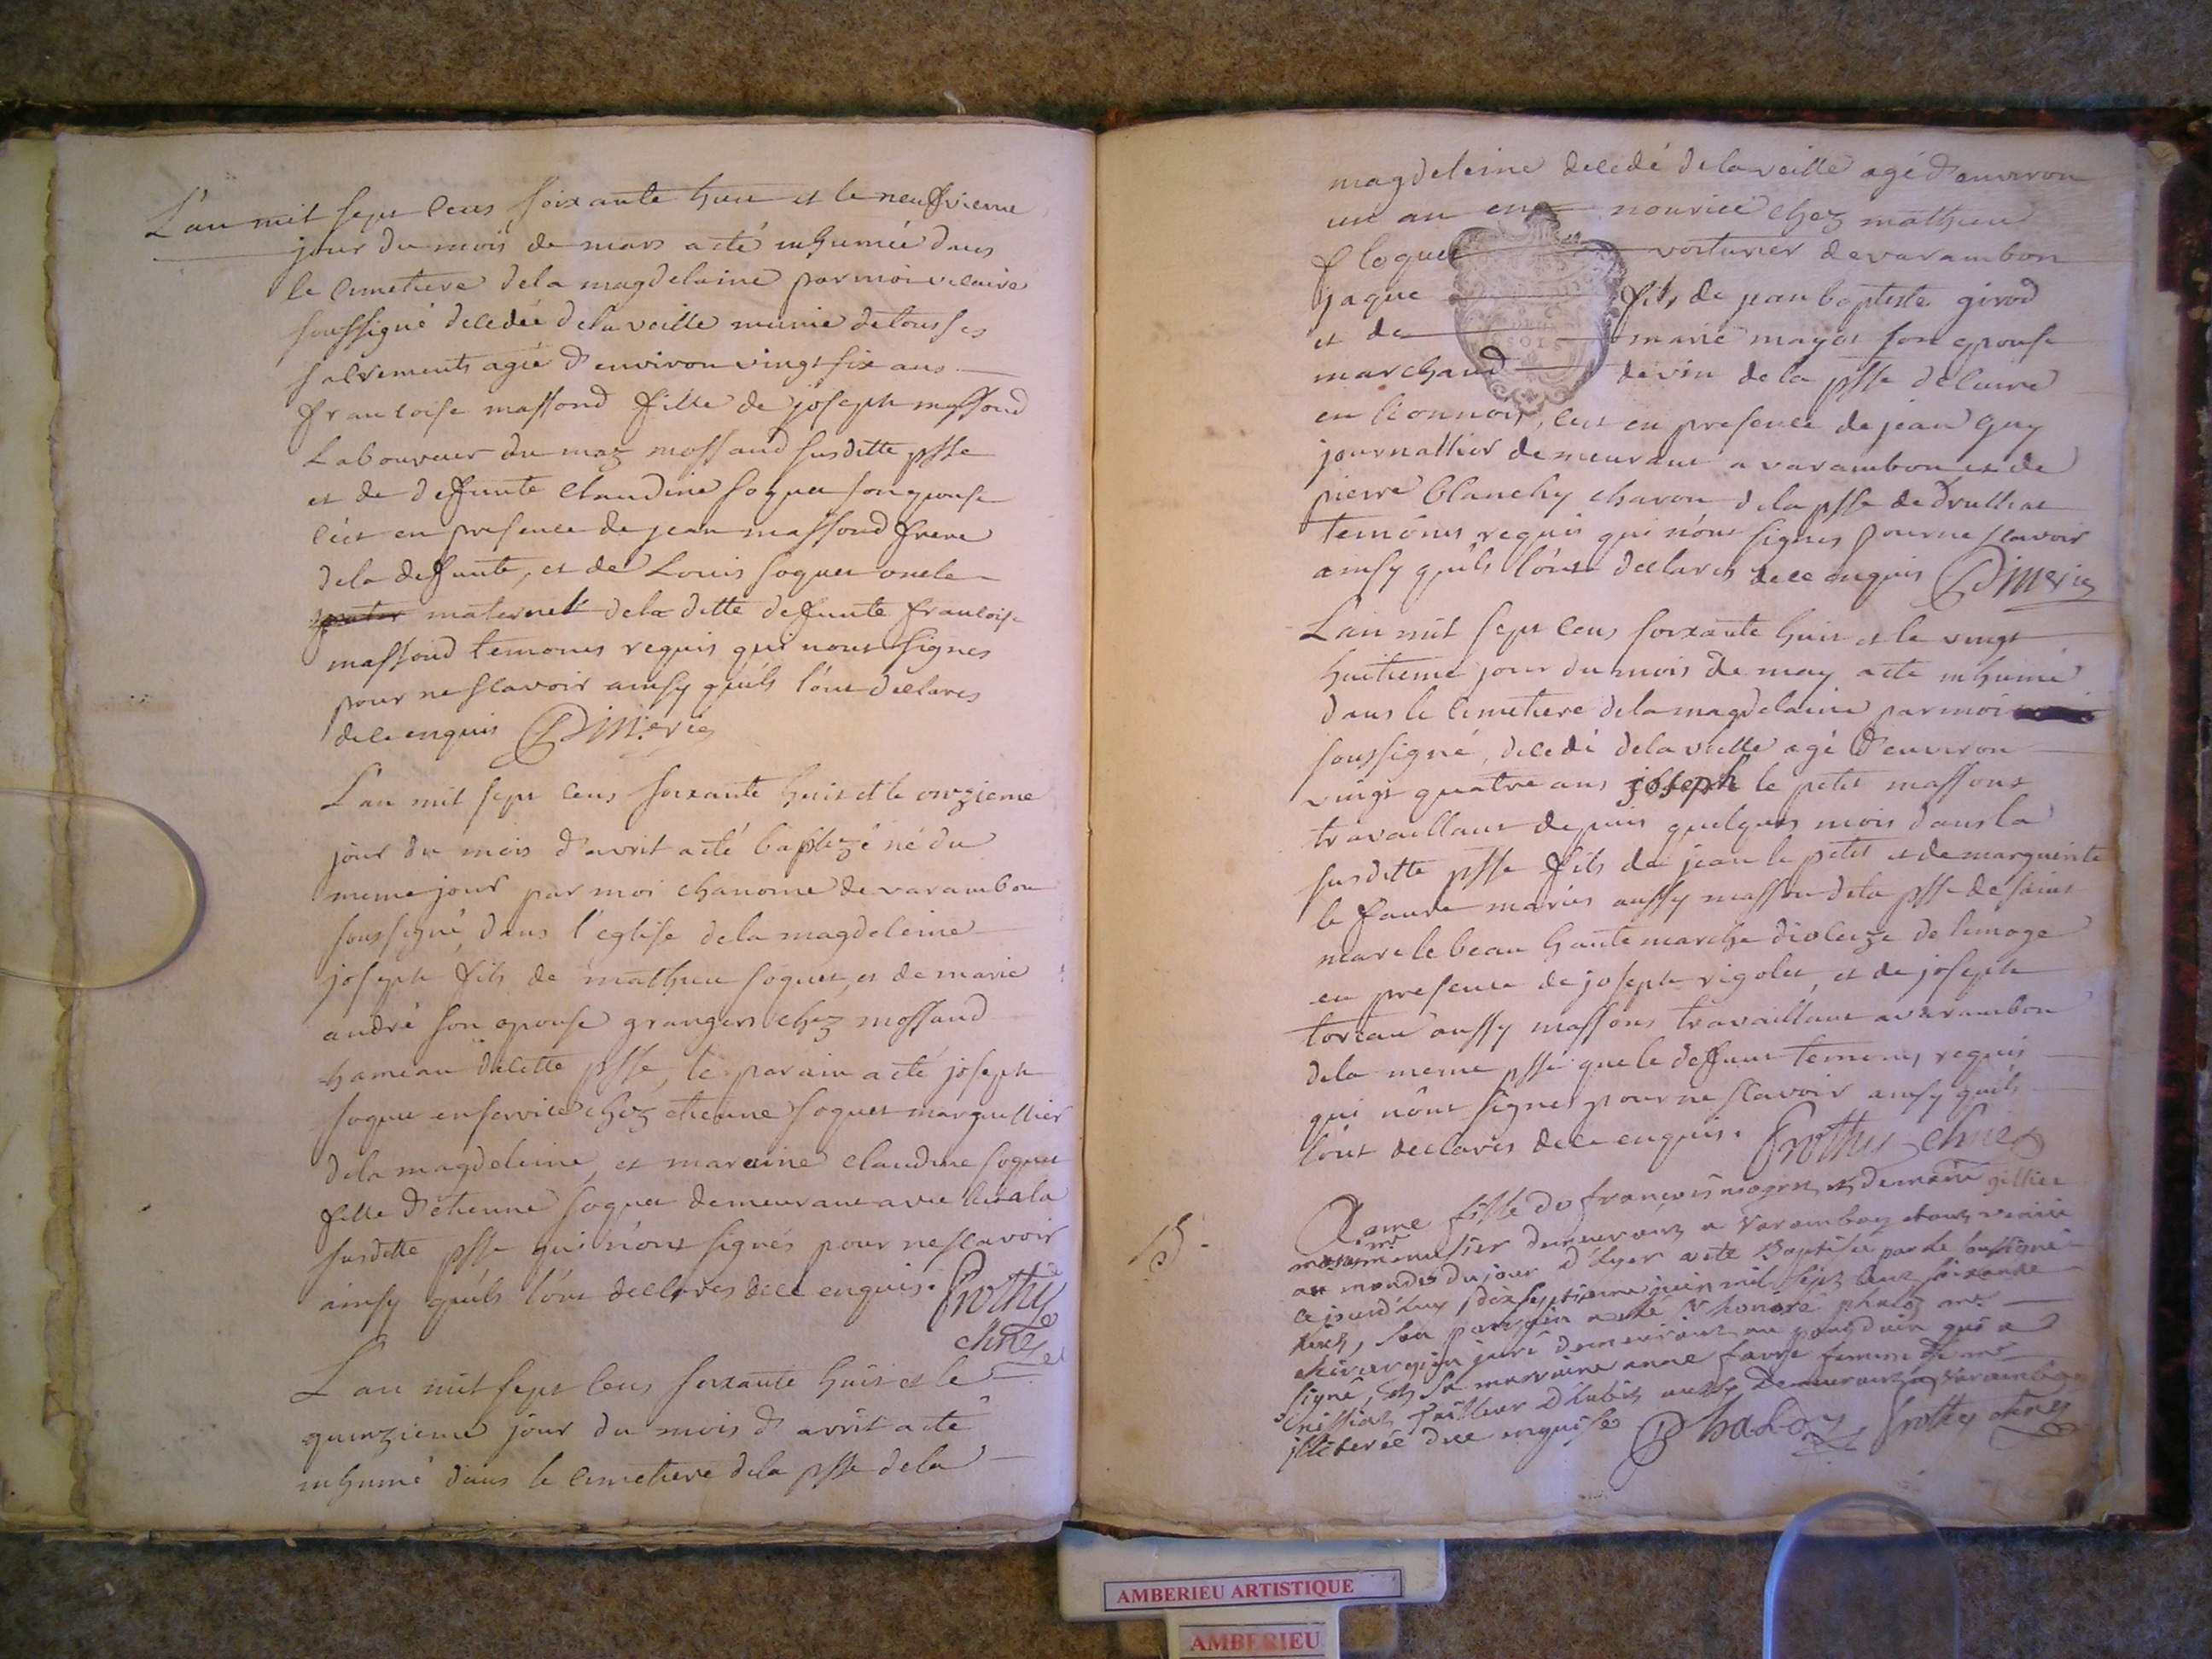 L'an mil sept cens soixante huit et le neufvieme
jour du mois de mars a eté inhumée dans
le cimetiere de la magdelaine par moi vicaire
soussigné decedée de la veille munie de tous ses
sacrements agée d'environ vingt six ans
francoise massond fille de joseph massond
Laboureur du maz mossand susditte psse
et de deffunte claudine soquet son epouse
c'est en presence de jean massond frere
de la deffunte, et de Louis soquet oncle
pater maternel de la ditte deffunte francoise
massond temoins requis qui n'ont signes
pour ne scavoir ainsy qu'ils l'ont declarés
de ce enquis
L'an mil sept cens soixante huit et le onzieme
jour du mois d'avril a eté baptizé né du
meme jour par moi chanoine de varambon
soussigné, dans l'eglise de la magdeleine
joseph fils de mathieu soquet, et de marie
andré son epouse grangers chez mossand
hameau de cette psse, le parain a eté joseph
soquet en service chez etienne soquet marguillier
de la magdeleine, et maraine claudine soquet
fille d'etienne soquet demeurant avec lui a la
susditte psse qui n'ont signés pour ne scavoir
ainsy qu'ils l'ont declarés de ce enquis. Frothy
chne
L'an mil sept cens soixante huit et le
quinzieme jour du mois d'avril a eté
inhumé dans le cimetiere de la psse de la
magdeleine decedé de la veille agé d'environ
un an en nourice chez mathieu
floquet voiturier de varambon
jaque fils de jean baptiste girod
et de marie mayet son epouse
marchand de vin de la psse de
en lionnois, c'est en presence de jean Guy
journallier demeurant a varambon, et de
pierre blanchy charon de la psse de druillat
temoins requis qui n'ont signes pour ne scavoir
ainsy qu'ils l'ont declares de ce enquis
L'an mil sept cens soixante huit et le vingt
huitieme jour du mois de may a eté inhumé
dans le cimetiere de la magdelaine par moi
soussigné, decedé de la veille agé d'environ
vingt quatre ans joseph le petit massont
travaillant depuis quelques mois dans la
susditte psse fils de jean le petit et de marguerite
le faure mariés aussy masson de la psse de saint
marc le beau haute marche diocèze de limoge
en presence de joseph rigolet, et de joseph
toreau aussy massons travaillant a varambon
de la meme psse que le deffunt temoins requis
qui n'ont signes pour ne scavoir ainsy qu'ils
l'ont declarés de ce enquis. Frothy chne
B.
Anne fille de françois et de marie
menusier demeurant a Varambon etant venüe
au monde du jour d'hyer a eté Baptisée par le soussigné
ce jourd'huy dix septieme juin mil sept cent soixante
huit, son parrain a eté Sr honoré phaloz mre
chirurgien juré demeurant au pont d'ain qui a
signé, et sa marraine anne favre femme de mre
tailleur d'habits aussy demeurant a Varambon
illiterée de ce enquise Phaloz Frothy chne
AMBERIEU ARTISTIQUE
AMBERIEU